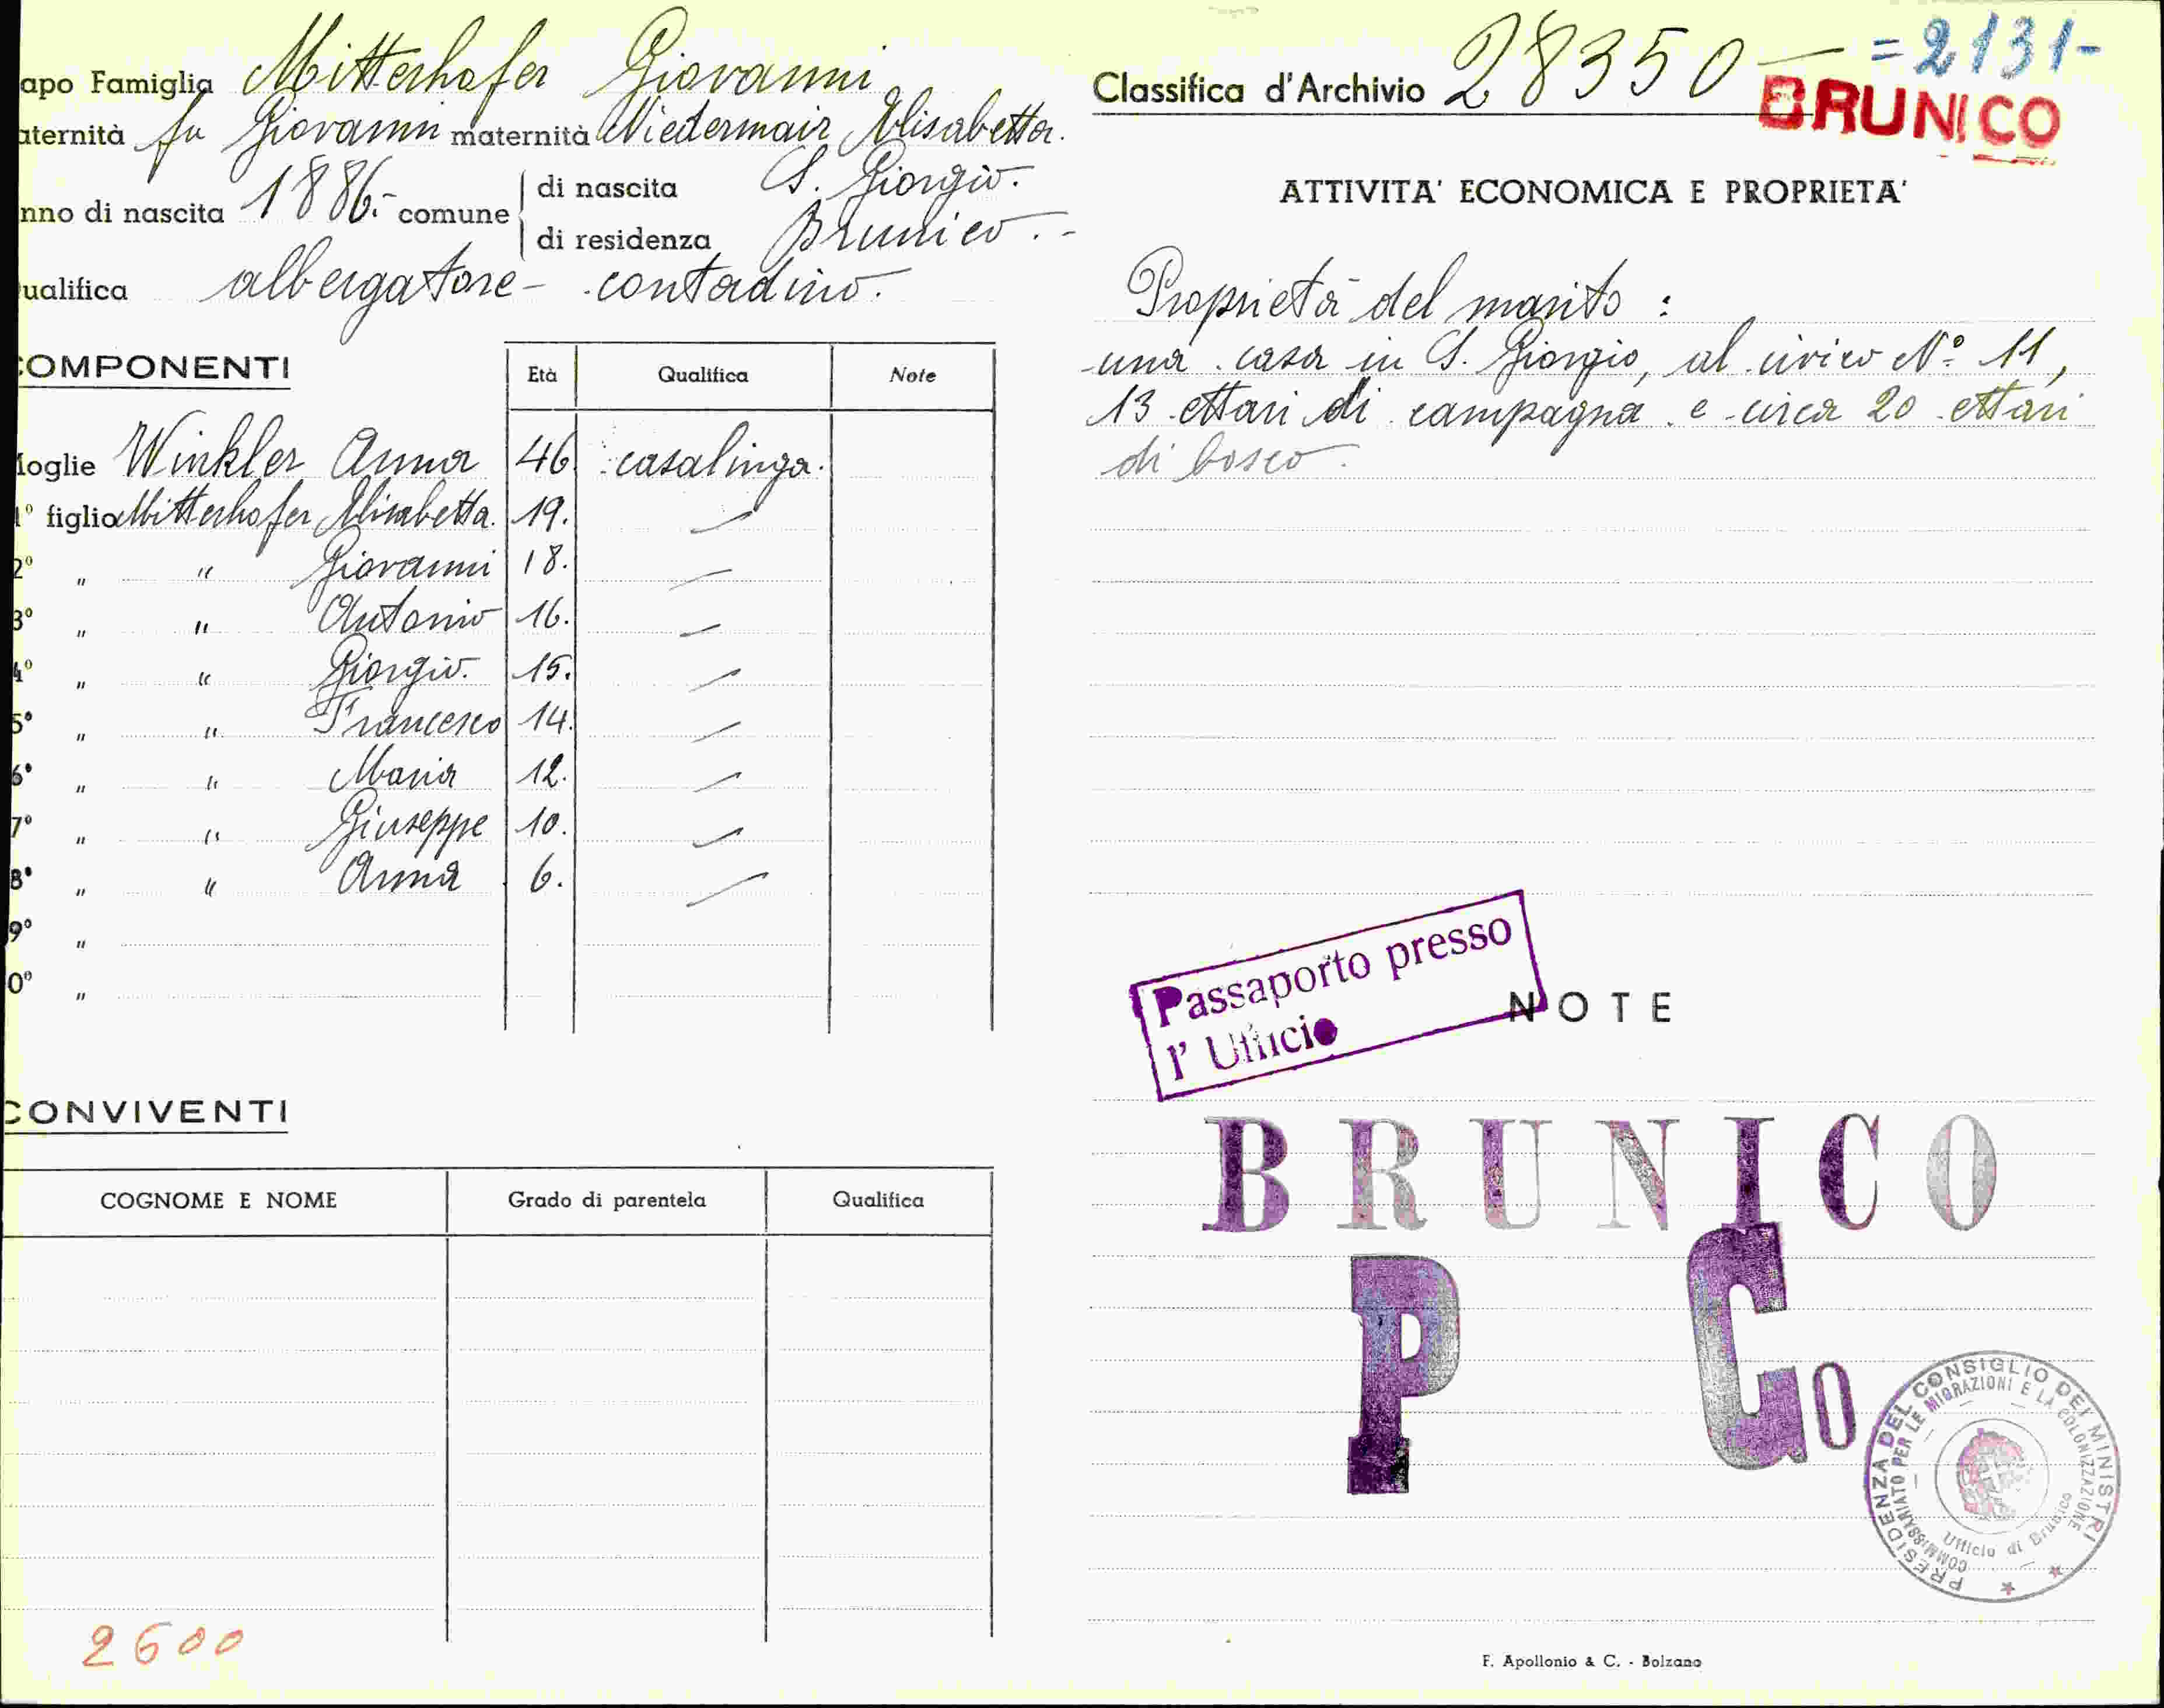 apo Famiglia Mitterhofer Giovanni
aternità fu Giovanni maternità Niedermair Elisabetta.
nno di nascita 1886.- comune di nascita S. Giorgio.
di residenza Brunico.-
ualifica albergatore - contadino.
COMPONENTI
Età Qualifica Note
loglie Winkler Anna 46 casalinga.
1° figlio Mitterhofer Elisabetta. 19. —
2° " " Giovanni 18. —
3° " " Antonio 16. —
4° " " Giorgio. 15. —
5° " " Francesco 14. —
6° " " Maria 12. —
7° " " Giuseppe 10. —
8° " " Anna 6. —
9° "
0° "
CONVIVENTI
COGNOME E NOME Grado di parentela Qualifica
2600
Classifica d'Archivio 28350 — = 2131-
BRUNICO
ATTIVITA' ECONOMICA E PROPRIETA'
Proprietà del marito :
una casa in S. Giorgio, al civico N° 11,
13 ettari di campagna e circa 20 ettari
di bosco.
Passaporto presso
l' Ufficio
NOTE
BRUNICO
P Go
PRESIDENZA DEL CONSIGLIO DEI MINISTRI
COMMISSARIATO PER LE MIGRAZIONI E LA COLONIZZAZIONE
Ufficio di Brunico
F. Apollonio & C. - Bolzano